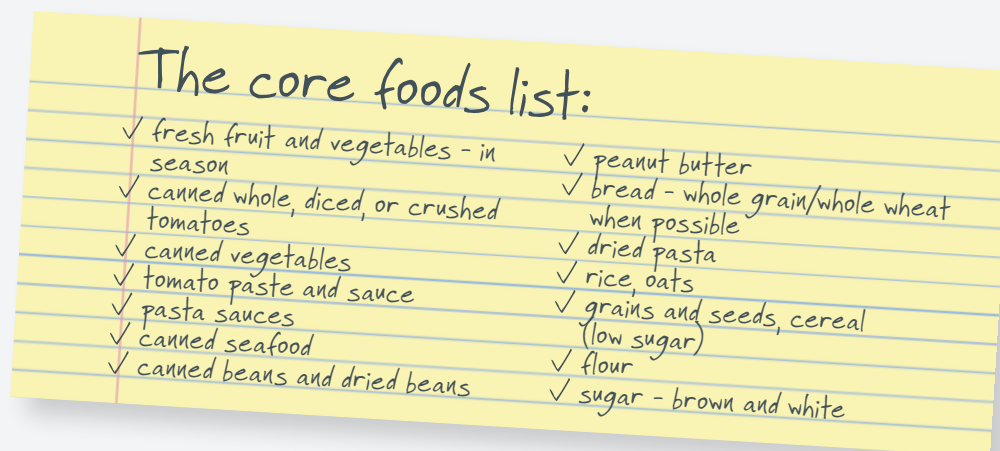 The core foods list:
✓ fresh fruit and vegetables - in
season
✓ canned whole, diced, or crushed
tomatoes
✓ canned vegetables
✓ tomato paste and sauce
✓ pasta sauces
✓ canned seafood
✓ canned beans and dried beans
✓ peanut butter
✓ bread - whole grain/whole wheat
when possible
✓ dried pasta
✓ rice, oats
✓ grains and seeds, cereal
(low sugar)
✓ flour
✓ sugar - brown and white